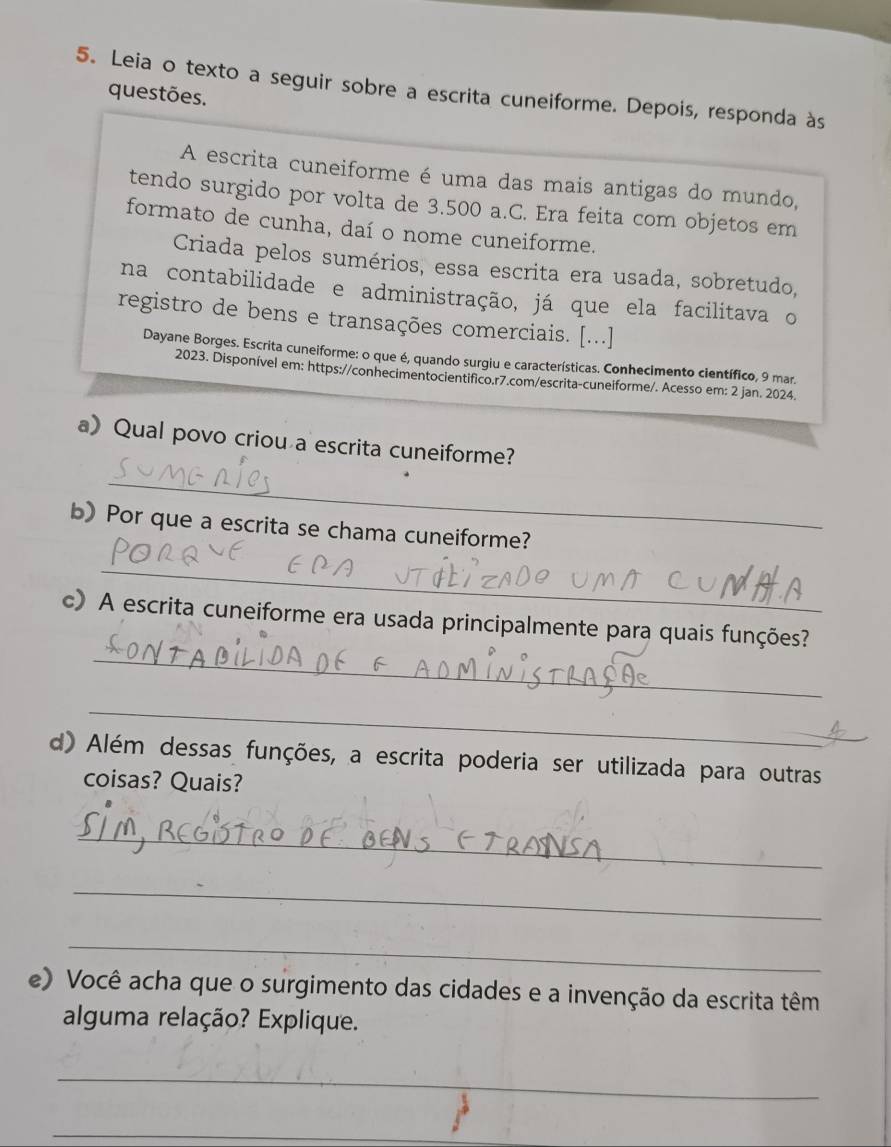 5. Leia o texto a seguir sobre a escrita cuneiforme. Depois, responda às
questões.
A escrita cuneiforme é uma das mais antigas do mundo,
tendo surgido por volta de 3.500 a.C. Era feita com objetos em
formato de cunha, daí o nome cuneiforme.
Criada pelos sumérios, essa escrita era usada, sobretudo,
na contabilidade e administração, já que ela facilitava o
registro de bens e transações comerciais. [...]
Dayane Borges. Escrita cuneiforme: o que é, quando surgiu e características. Conhecimento científico, 9 mar.
2023. Disponível em: https://conhecimentocientifico.r7.com/escrita-cuneiforme/. Acesso em: 2 jan. 2024.
a) Qual povo criou a escrita cuneiforme?
SUMERIOS
b) Por que a escrita se chama cuneiforme?
PORQUE ERA UTILIZADO UMA CUNHA
c) A escrita cuneiforme era usada principalmente para quais funções?
CONTABILIDADE E ADMINISTRAÇÃO
d) Além dessas funções, a escrita poderia ser utilizada para outras
coisas? Quais?
SIM, REGISTRO DE BENS E TRANSA
e) Você acha que o surgimento das cidades e a invenção da escrita têm
alguma relação? Explique.